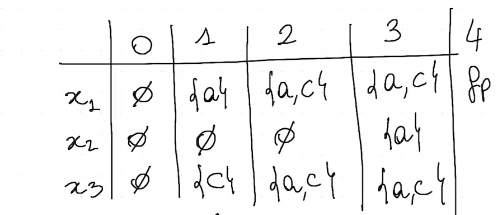 0 1 2 3 4
x1 ∅ {a} {a,c} {a,c} fp
x2 ∅ ∅ ∅ {a}
x3 ∅ {c} {a,c} {a,c}